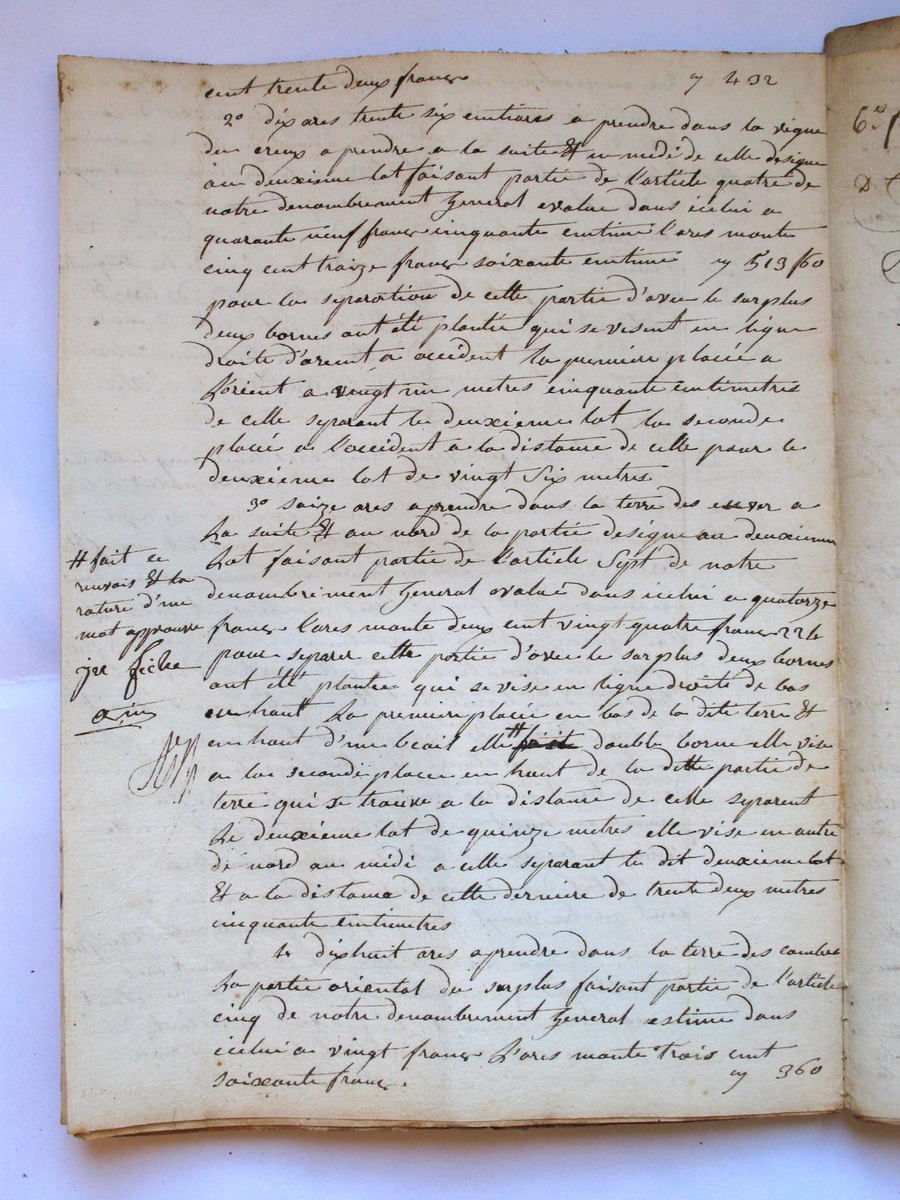 cent trente deux francs y 432
2o dix ares trente six centiares a prendre dans la vigne
du creux a prendre a la suite Et en midi de celle designe
au deuxieme lot faisant partie de l'article quatre de
notre denombrement General evalue dans icelui a
quarante neuf francs cinquante centime l'ares monte
cinq cent traize francs soixante centime y 513 f 60
pour la separation de cette partie d'avec le surplus
deux bornes ont été plantée qui se visent en ligne
droite d'orient a occident la premiere placée a
L'orient a vingt un metres cinquante centimetres
de celle separant le deuxieme lot la seconde
placée a l'occident a la distance de celle pour le
deuxieme lot de vingt Six metres
3o saize ares a prendre dans la terre des a
La suite Et au nord de la partie designe au deuxieme
Lot faisant partie de l'article Sept de notre
denombrement General evalué dans icelui a quatorze
francs l'ares monte deux cent vingt quatre francs 224
pour separer cette partie d'avec le surplus deux bornes
ont été plantée qui se vise en ligne droite de bas
en haut La premier placée en bas de la dite terre Et
en haut d'une elle # double borne elle vise
a la seconde placée en haut de la ditte partie de
terre qui se trouve a la distance de celle separent
Le deuxieme lot de quinze metres elle vise en outre
de nord au midi a celle separant le dit deuxieme lot
Et a la distance de cette derniere de trente deux metres
cinquante centimetres
4 dixhuit ares a prendre dans la terre des combes
La partie oriental du surplus faisant partie de l'article
cinq de notre denombrement General estime dans
icelui a vingt francs L'ares monte trois cent
soixante francs. y 360
# fait ce
renvois Et la
rature d'un
mot approuve